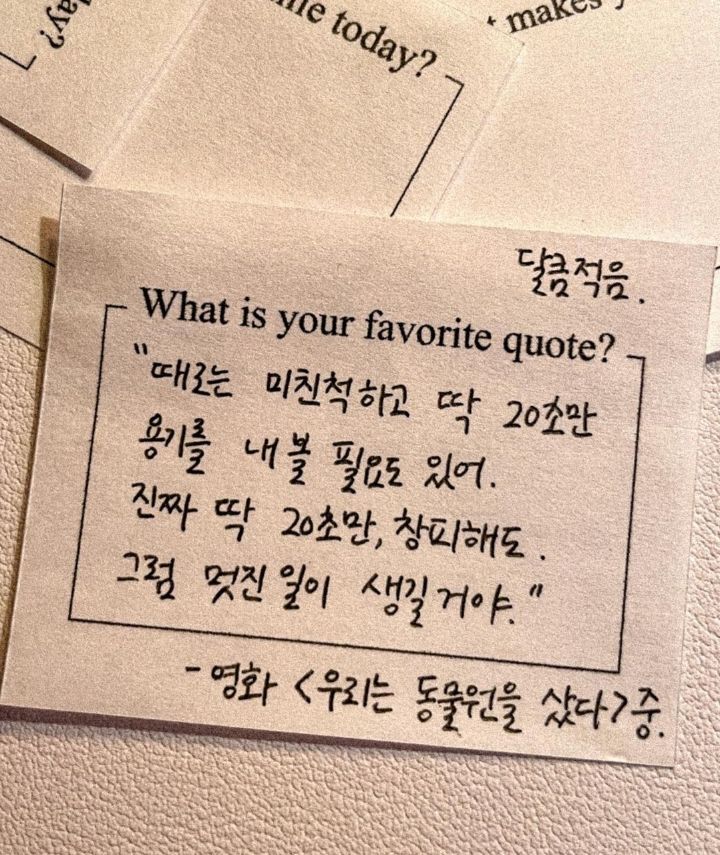 ay?
me today?
makes
달큼적음.
What is your favorite quote?
"때로는 미친척하고 딱 20초만
용기를 내 볼 필요도 있어.
진짜 딱 20초만, 창피해도.
그럼 멋진 일이 생길거야."
- 영화 <우리는 동물원을 샀다> 중.